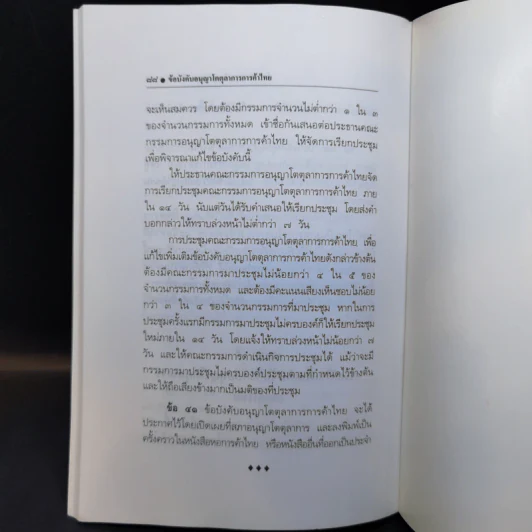 ๘๘ ● ข้อบังคับอนุญาโตตุลาการการค้าไทย
จะเห็นสมควร โดยต้องมีกรรมการจำนวนไม่ต่ำกว่า ๑ ใน ๓
ของจำนวนกรรมการทั้งหมด เข้าชื่อกันเสนอต่อประธานคณะ
กรรมการอนุญาโตตุลาการการค้าไทย ให้จัดการเรียกประชุม
เพื่อพิจารณาแก้ไขข้อบังคับนี้
ให้ประธานคณะกรรมการอนุญาโตตุลาการการค้าไทยจัด
การเรียกประชุมคณะกรรมการอนุญาโตตุลาการการค้าไทย ภาย
ใน ๑๔ วัน นับแต่วันได้รับคำเสนอให้เรียกประชุม โดยส่งคำ
บอกกล่าวให้ทราบล่วงหน้าไม่ต่ำกว่า ๗ วัน
การประชุมคณะกรรมการอนุญาโตตุลาการการค้าไทย เพื่อ
แก้ไขเพิ่มเติมข้อบังคับอนุญาโตตุลาการการค้าไทยดังกล่าวข้างต้น
ต้องมีคณะกรรมการมาประชุมไม่น้อยกว่า ๔ ใน ๕ ของ
จำนวนกรรมการทั้งหมด และต้องมีคะแนนเสียงเห็นชอบไม่น้อย
กว่า ๓ ใน ๔ ของจำนวนกรรมการที่มาประชุม หากในการ
ประชุมครั้งแรกมีกรรมการมาประชุมไม่ครบองค์ก็ให้เรียกประชุม
ใหม่ภายใน ๑๔ วัน โดยแจ้งให้ทราบล่วงหน้าไม่ต่ำกว่า ๗
วัน และให้คณะกรรมการดำเนินกิจการประชุมได้ แม้ว่าจะมี
กรรมการมาประชุมไม่ครบองค์ประชุมตามที่กำหนดไว้ข้างต้น
และให้ถือเสียงข้างมากเป็นมติของที่ประชุม
ข้อ ๔๑ ข้อบังคับอนุญาโตตุลาการการค้าไทย จะได้
ประกาศไว้โดยเปิดเผยที่สภาอนุญาโตตุลาการ และลงพิมพ์เป็น
ครั้งคราวในหนังสือหอการค้าไทย หรือหนังสืออื่นที่ออกเป็นประจำ
♦♦♦